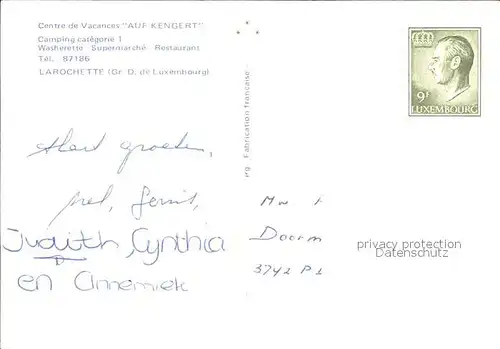 Centre de Vacances "AUF KENGERT"
Camping catégorie 1
Washerette Supermarché Restaurant
Tél. 87186
LAROCHETTE (Gr. D. de Luxembourg)
9F
LUXEMBOURG
rg - Fabrication française -
groeten,
Judith, Cynthia
en Annemiek
Doorn
3742 P
privacy protection
Datenschutz